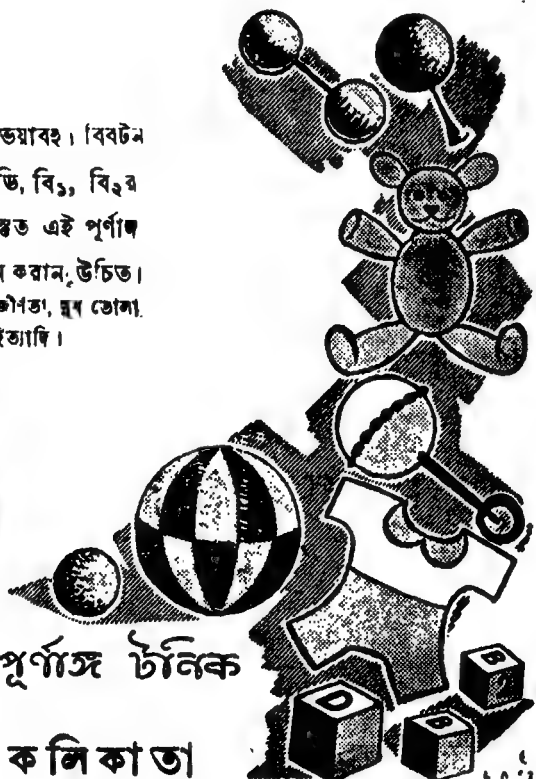 ভয়াবহ। বিবটন
ডি, বি১, বি২র
স্তুত এই পূর্ণাঙ্গ
ন করান উচিত।
ক্ষীণতা, দুধ তোলা
ইত্যাদি।
পূর্ণাঙ্গ টনিক
কলিকাতা
D
B
B